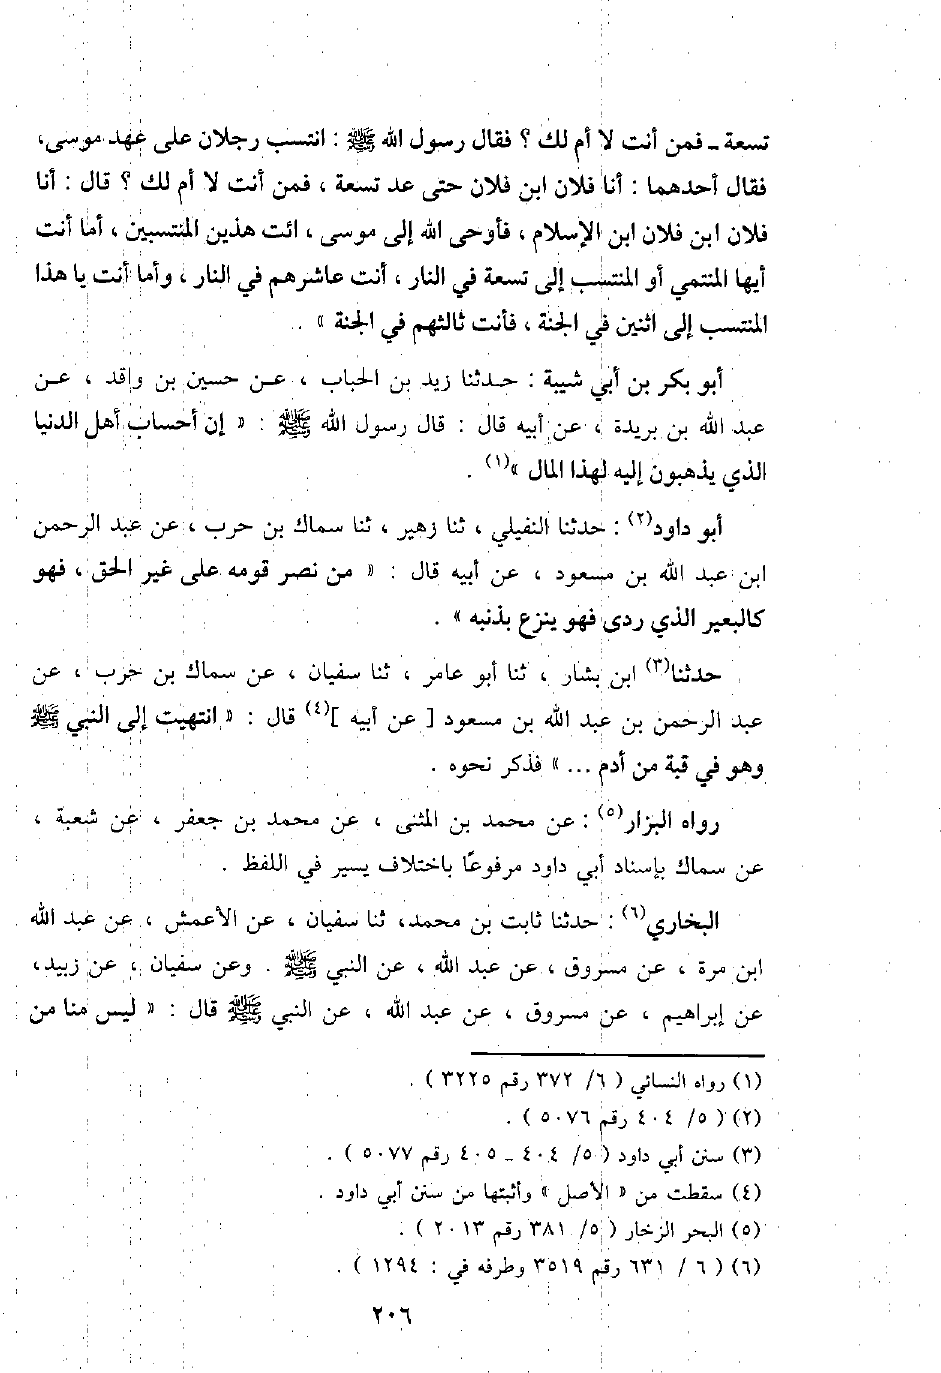 تسعة ـ فمن أنت لا أم لك ؟ فقال رسول الله ﷺ : انتسب رجلان على عهد موسى،
فقال أحدهما : أنا فلان ابن فلان حتى عد تسعة ، فمن أنت لا أم لك ؟ قال : أنا
فلان ابن فلان ابن الإسلام ، فأوحى الله إلى موسى ، ائت هذين المنتسبين ، أما أنت
أيها المنتمي أو المنتسب إلى تسعة في النار ، أنت عاشرهم في النار ، وأما أنت يا هذا
المنتسب إلى اثنين في الجنة ، فأنت ثالثهم في الجنة » .
أبو بكر بن أبي شيبة : حدثنا زيد بن الحباب ، عن حسين بن واقد ، عن
عبد الله بن بريدة ، عن أبيه قال : قال رسول الله ﷺ : « إن أحساب أهل الدنيا
الذي يذهبون إليه لهذا المال »(١) .
أبو داود(٢) : حدثنا النفيلي ، ثنا زهير ، ثنا سماك بن حرب ، عن عبد الرحمن
ابن عبد الله بن مسعود ، عن أبيه قال : « من نصر قومه على غير الحق ، فهو
كالبعير الذي ردى فهو ينزع بذنبه » .
حدثنا(٣) ابن بشار ، ثنا أبو عامر ، ثنا سفيان ، عن سماك بن حرب ، عن
عبد الرحمن بن عبد الله بن مسعود [ عن أبيه ](٤) قال : « انتهيت إلى النبي ﷺ
وهو في قبة من أدم ... » فذكر نحوه .
رواه البزار(٥) : عن محمد بن المثنى ، عن محمد بن جعفر ، عن شعبة ،
عن سماك بإسناد أبي داود مرفوعًا باختلاف يسير في اللفظ .
البخاري(٦) : حدثنا ثابت بن محمد، ثنا سفيان ، عن الأعمش ، عن عبد الله
ابن مرة ، عن مسروق ، عن عبد الله ، عن النبي ﷺ . وعن سفيان ، عن زبيد،
عن إبراهيم ، عن مسروق ، عن عبد الله ، عن النبي ﷺ قال : « ليس منا من
(١) رواه النسائي ( ٦/ ٣٧٢ رقم ٣٢٢٥ ) .
(٢) ( ٥/ ٤٠٤ رقم ٥٠٧٦ ) .
(٣) سنن أبي داود ( ٥/ ٤٠٤ ـ ٤٠٥ رقم ٥٠٧٧ ) .
(٤) سقطت من « الأصل » وأثبتها من سنن أبي داود .
(٥) البحر الزخار ( ٥/ ٣٨١ رقم ٢٠١٣ ) .
(٦) ( ٦ / ٦٣١ رقم ٣٥١٩ وطرفه في : ١٢٩٤ ) .
٢٠٦